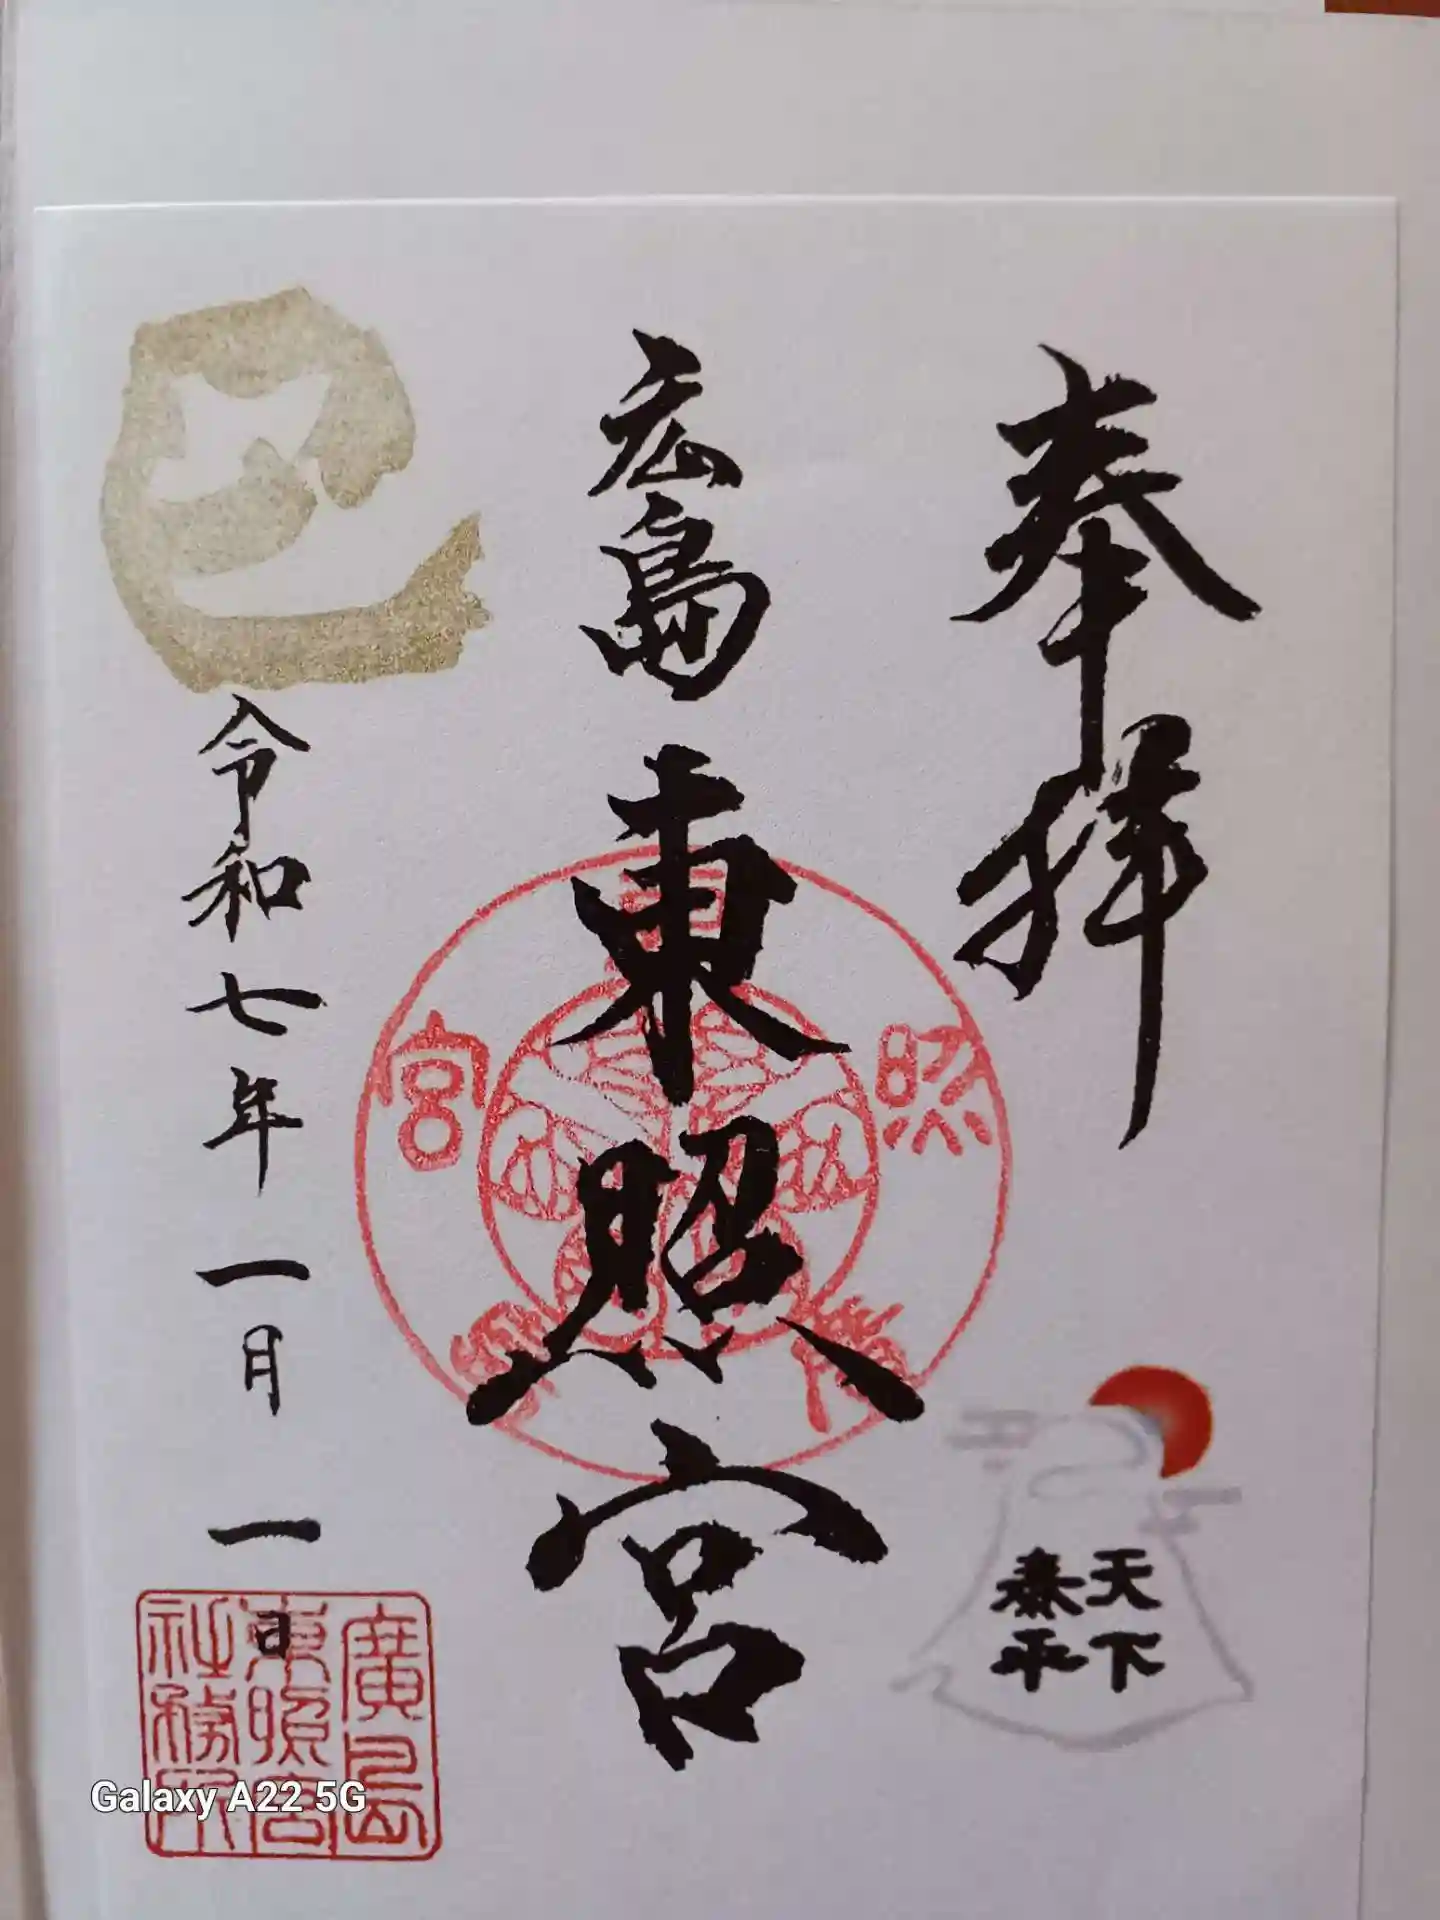 奉拝
広島東照宮
巳
令和七年一月一日
天下
泰平
東照宮
廣島
東照宮
社務所
Galaxy A22 5G